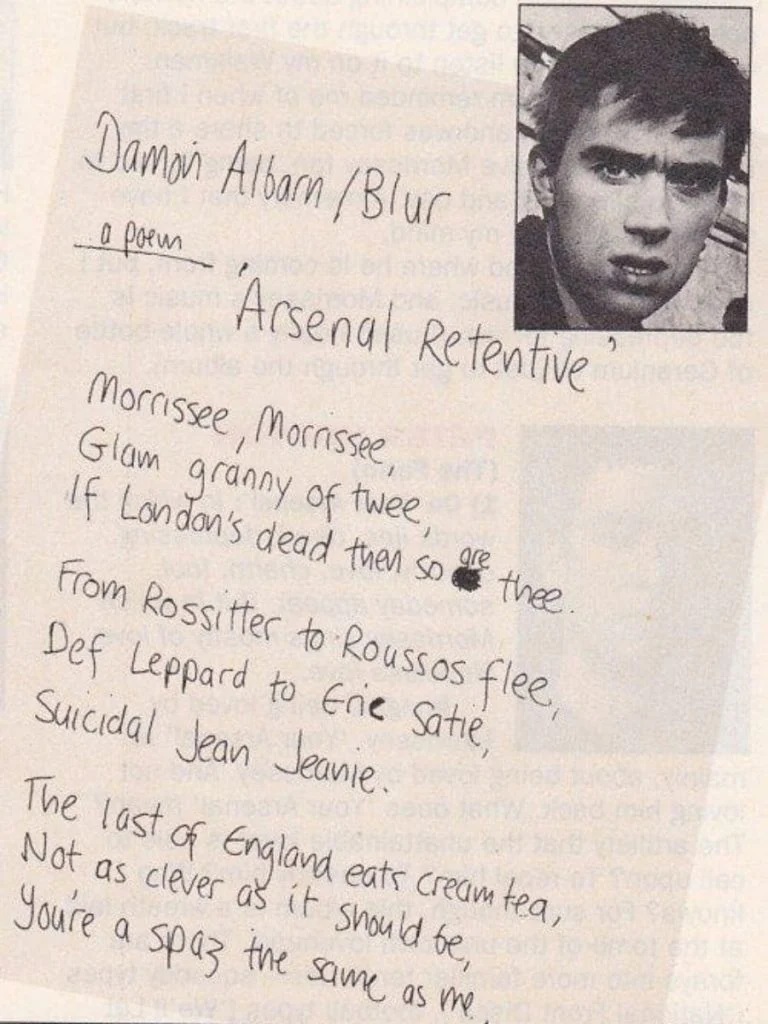 Damon Albarn/Blur
a poem
'Arsenal Retentive'
Morrissee, Morrissee,
Glam granny of twee,
'If London's dead then so are thee.
From Rossitter to Roussos flee,
Def Leppard to Eric Satie,
Suicidal Jean Jeanie.
The last of England eats cream tea,
Not as clever as it should be,
You're a spaz the same as me.